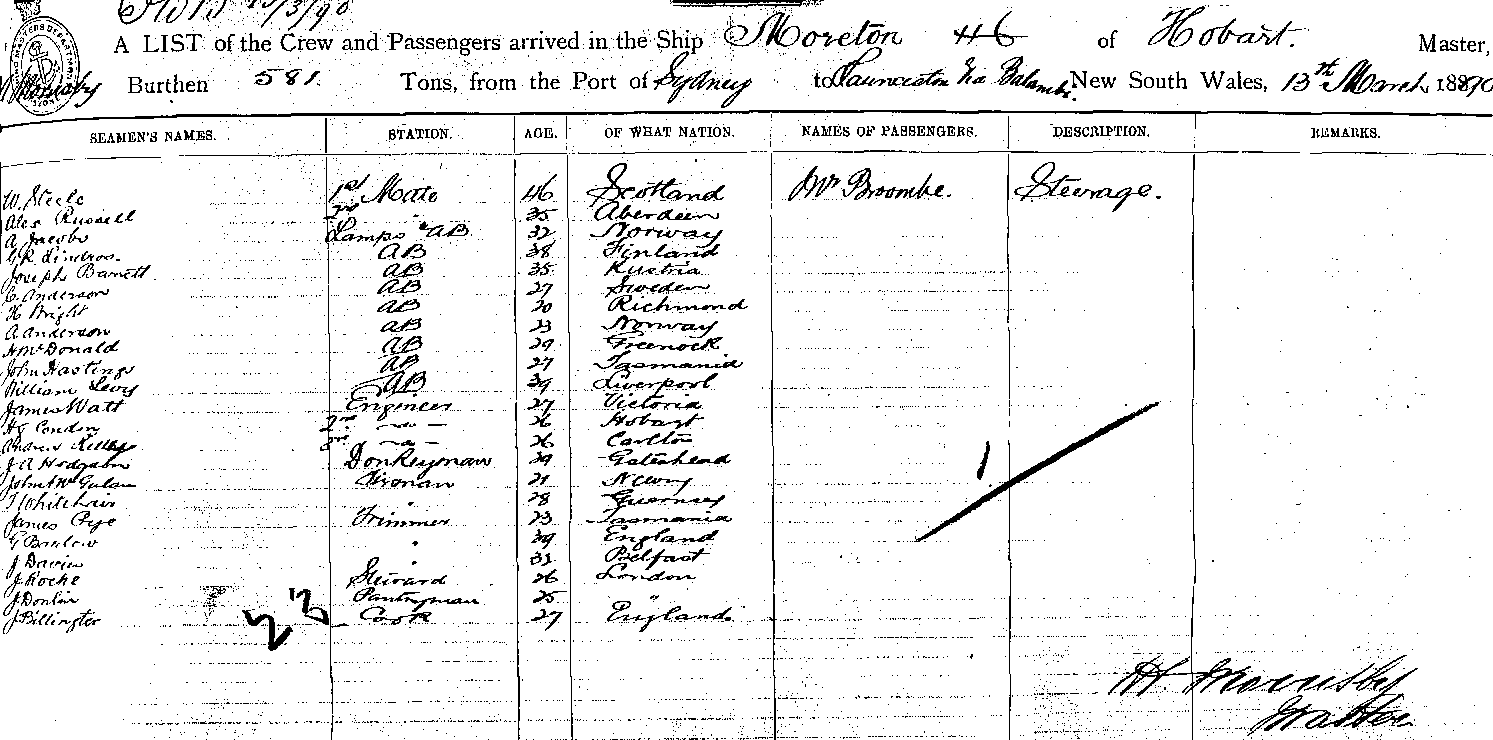 13/3/90
A LIST of the Crew and Passengers arrived in the Ship Moreton 46 of Hobart. Master,
Burthen 581. Tons, from the Port of Sydney to Launceston via New South Wales, 13th March, 1890
SEAMEN'S NAMES. STATION. AGE. OF WHAT NATION. NAMES OF PASSENGERS. DESCRIPTION. REMARKS.
W. Steele 1st Mate 46 Scotland Mr Broombe. Steerage.
Alex Russell 2nd " 35 Aberdeen
A Jacobs Lamps & AB 32 Norway
G.R. Lindros. AB 38 Finland
Joseph Barnett. AB 35 Austria
C. Anderson AB 27 Sweden
H Wright AB 20 Richmond
A. Anderson AB 23 Norway
H McDonald AB 29 Greenock
John Hastings AB 27 Tasmania
William Levy AB 39 Liverpool
James Watt Engineer 27 Victoria
H J Condon 2nd -do- 26 Hobart
Andrew 3rd -do- 26 Carlton
J. A Hodgson Donkeyman 29 Gateshead
John Fireman 21 Newry
T Whitehair " 28 Guernsey
James Pye Trimmer 23 Tasmania
G Barlow " 39 England
J Davies 32 Belfast
J. Roche Steward 26 London
J Donlin Pantryman 25 "
J Billington Cook 27 England
23
1
H. Morrisby
Master